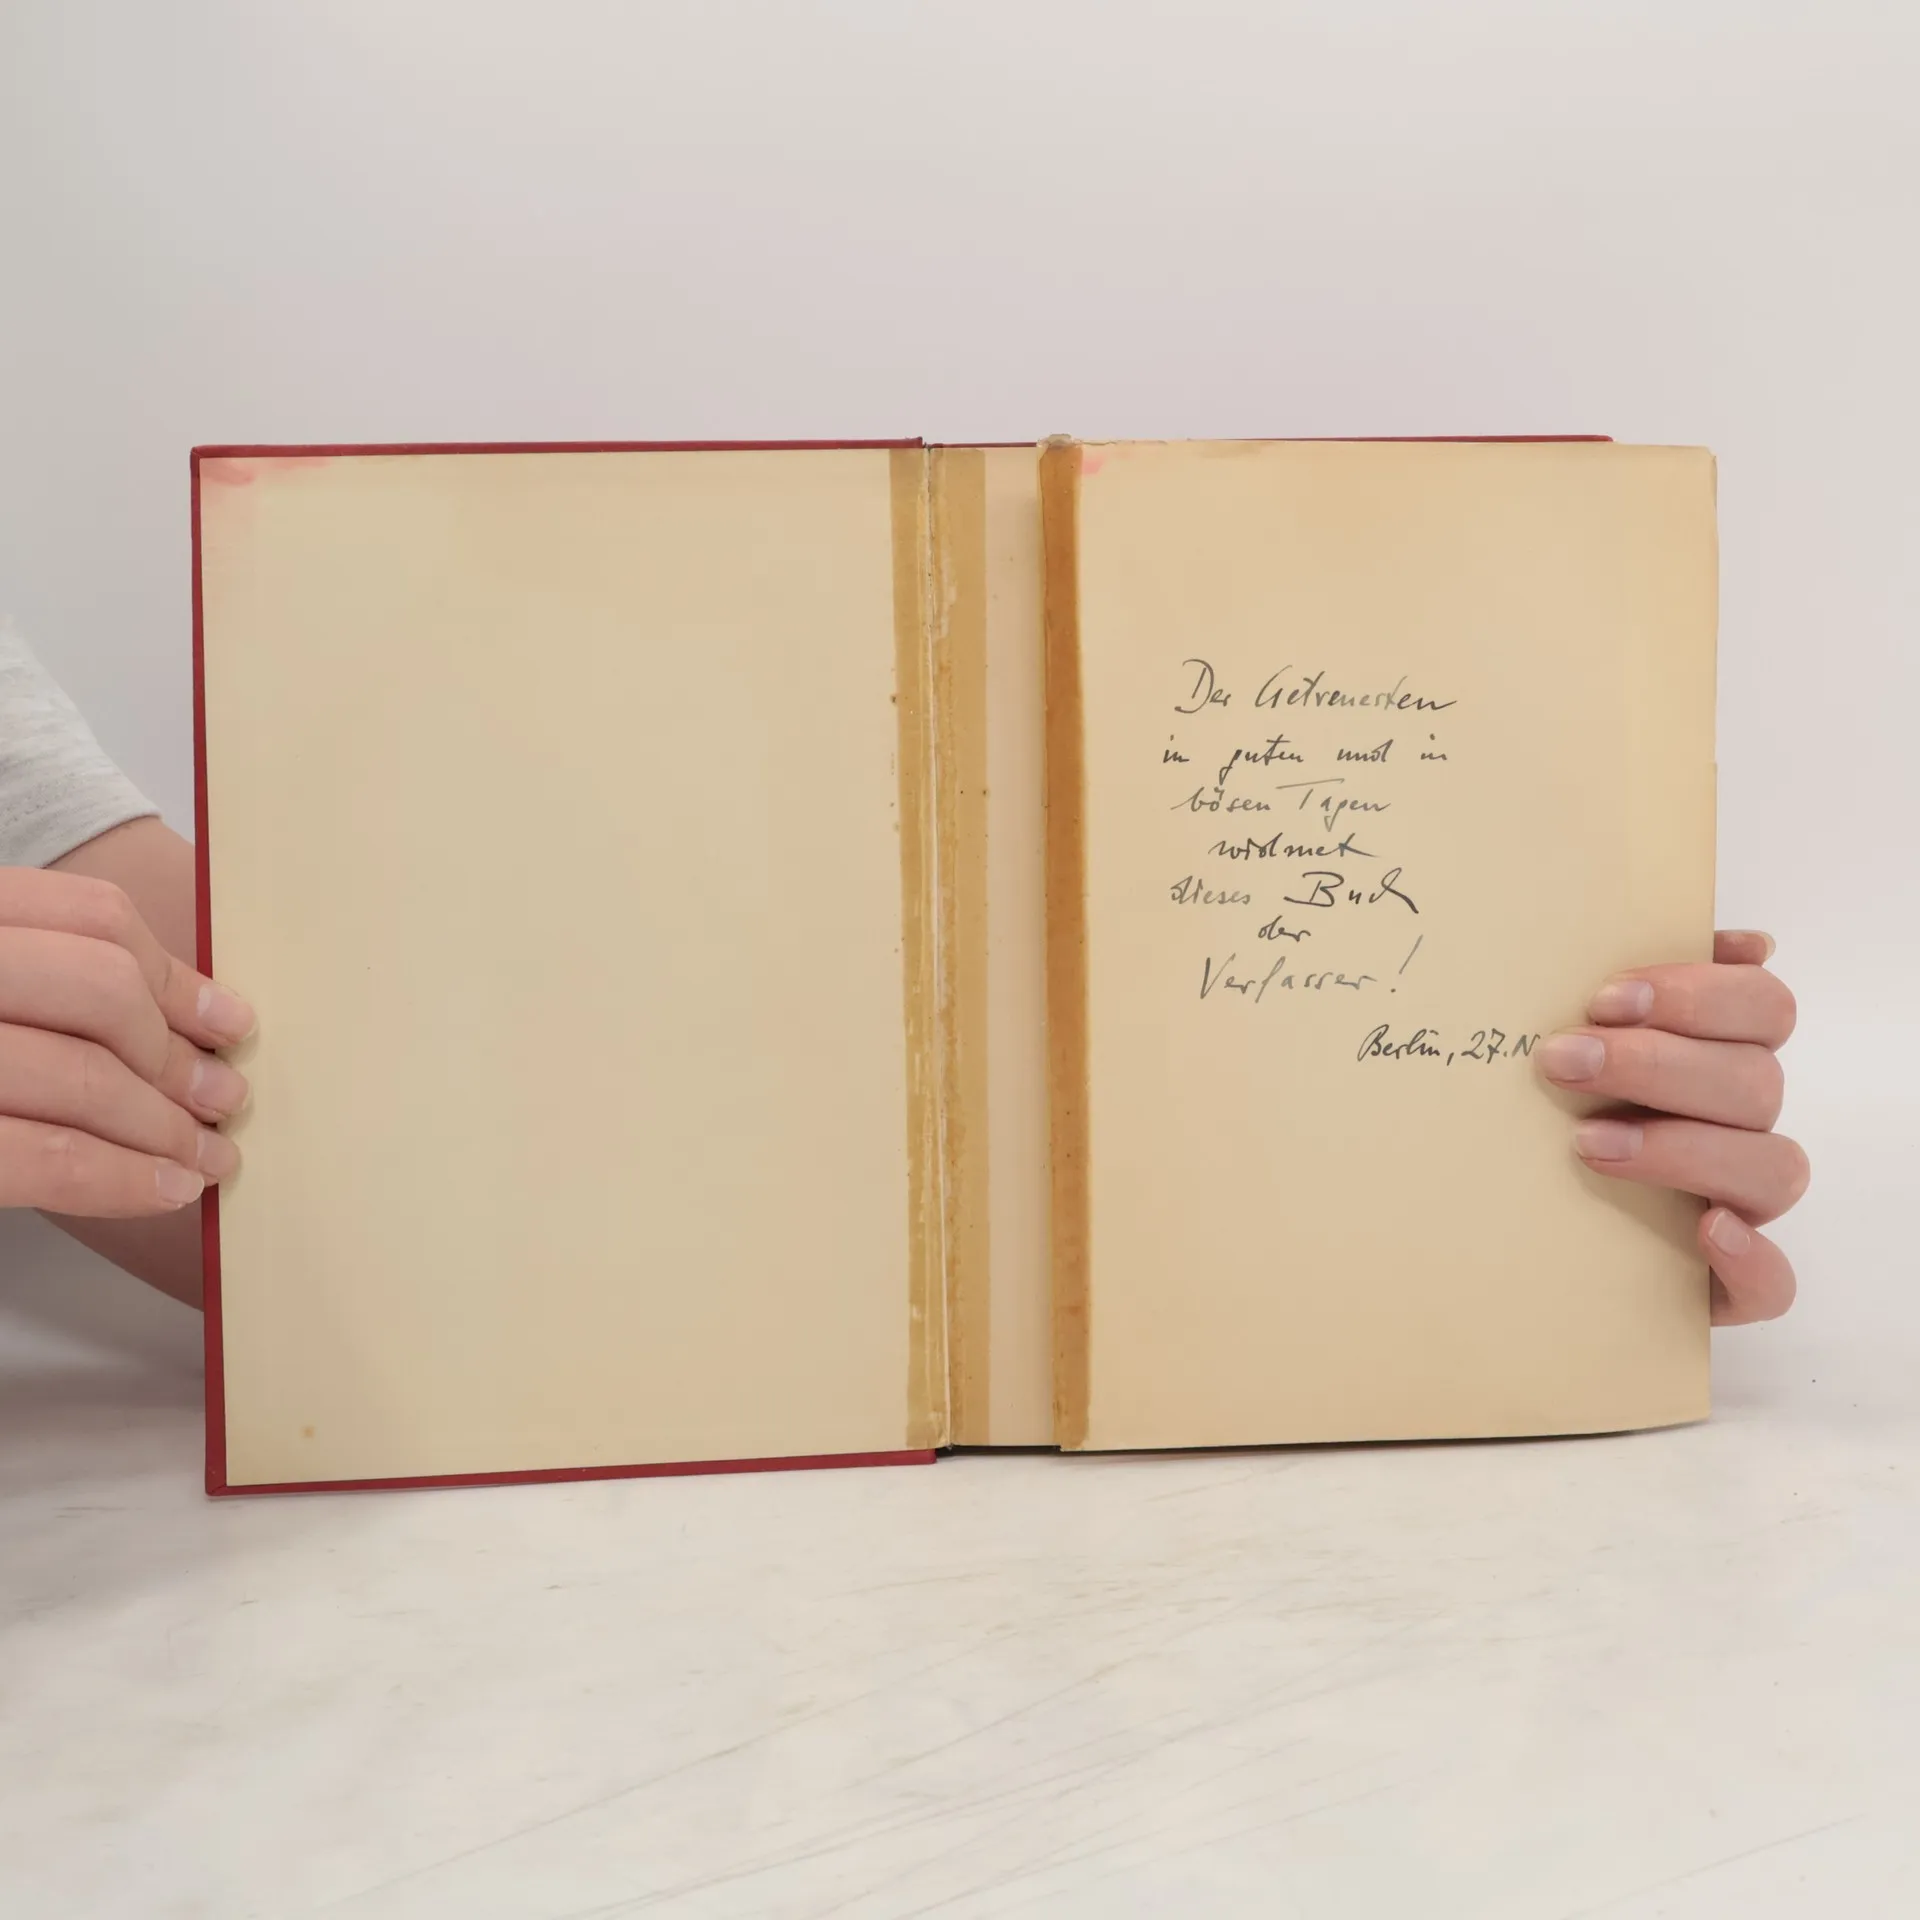 Der Getreuesten
in guten und in
bösen Tagen
widmet
dieses Buch
der
Verfasser!
Berlin, 27. N